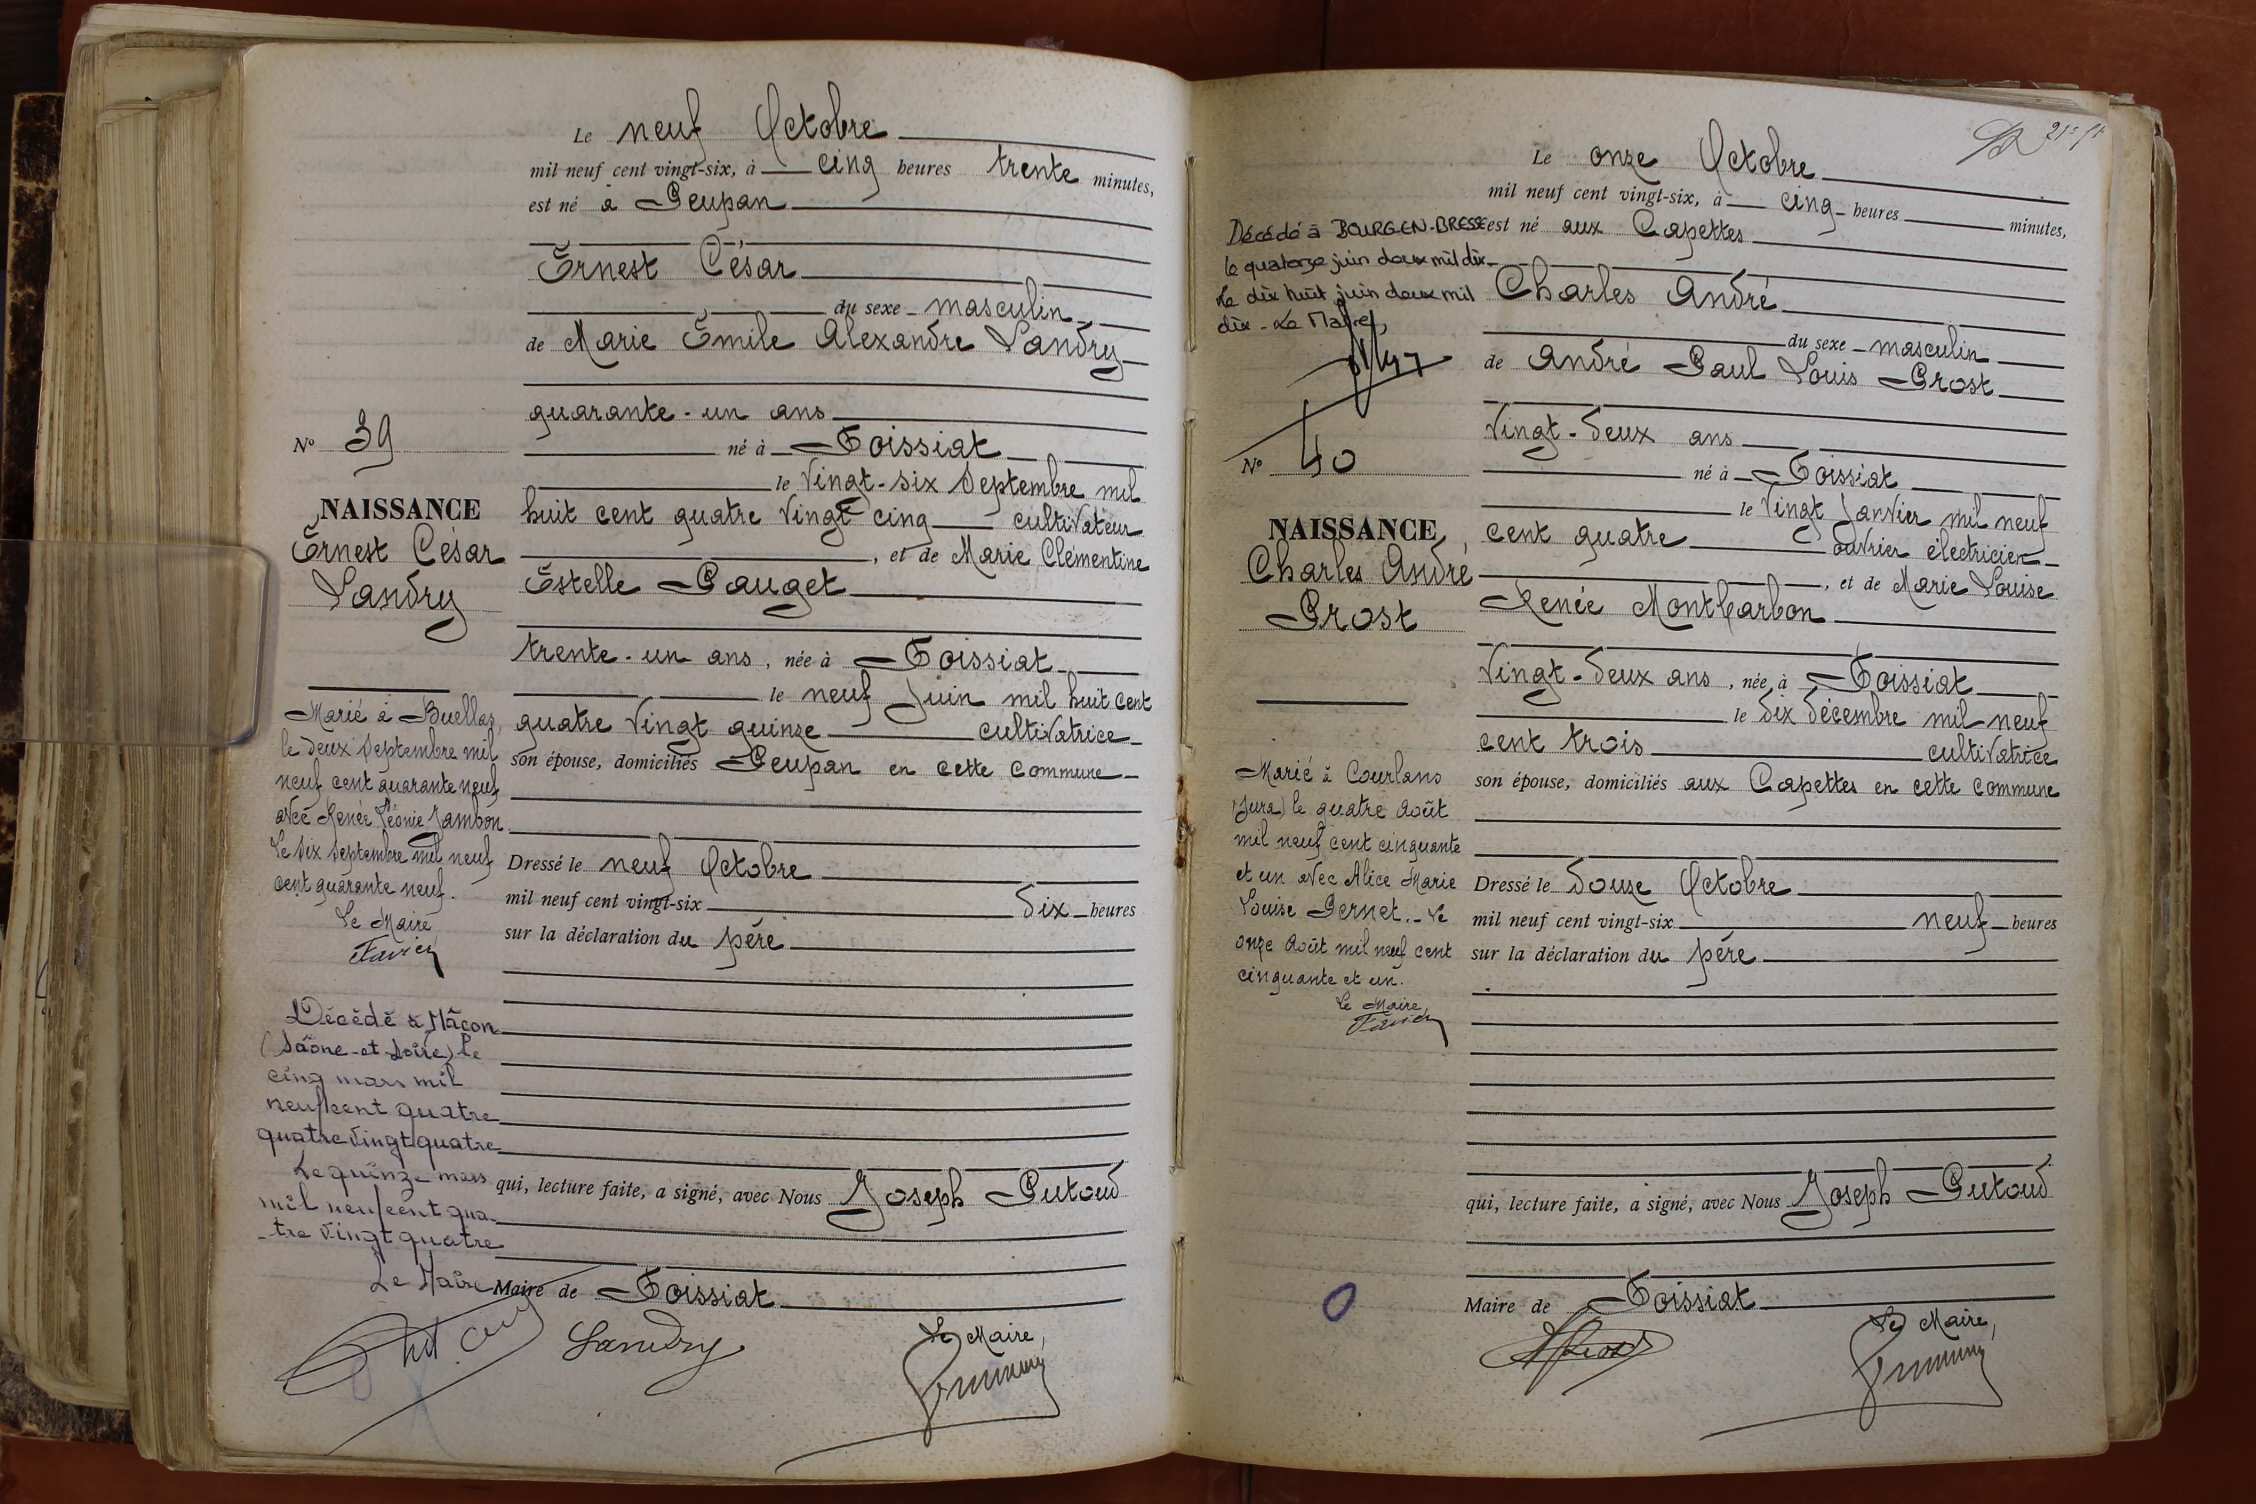 Le neuf Octobre
mil neuf cent vingt-six, à cinq heures trente minutes,
est né à Peupan
Ernest César
du sexe masculin
de Marie Emile Alexandre Landry
quarante-un ans
né à Foissiat
le vingt-six Septembre mil
huit cent quatre vingt cinq cultivateur
, et de Marie Clémentine
Estelle Pauget
trente-un ans, née à Foissiat
le neuf Juin mil huit cent
quatre vingt quinze cultivatrice
son épouse, domiciliés Peupan en cette commune
Dressé le neuf Octobre
mil neuf cent vingt-six dix heures
sur la déclaration du père
qui, lecture faite, a signé, avec Nous Joseph Putoud
Maire de Foissiat
Landry
Le Maire,
No 39
NAISSANCE
Ernest César
Landry
Marié à Buellas,
le deux Septembre mil
neuf cent quarante neuf
avec Renée Léonie Jambon
Le six Septembre mil neuf
cent quarante neuf.
Le Maire
Favier
Décédé à Mâcon
(Saône-et-Loire) le
cinq mars mil
neuf cent quatre
quatre vingt quatre
Le quinze mars
mil neuf cent qua-
-tre vingt quatre
Le Maire
21e ft
Le onze Octobre
mil neuf cent vingt-six, à cinq heures minutes,
est né aux Capettes
Charles André
du sexe masculin
de André Paul Louis Prost
vingt-deux ans
né à Foissiat
le vingt Janvier mil neuf
cent quatre ouvrier électricien
, et de Marie Louise
Renée Montbarbon
vingt-deux ans, née à Foissiat
le dix décembre mil neuf
cent trois cultivatrice
son épouse, domiciliés aux Capettes en cette commune
Dressé le douze Octobre
mil neuf cent vingt-six neuf heures
sur la déclaration du père
qui, lecture faite, a signé, avec Nous Joseph Putoud
Maire de Foissiat
Le Maire,
Décédé à BOURG-EN-BRESSE
le quatorze juin deux mil dix
Le dix huit juin deux mil
dix - Le Maire,
No 40
NAISSANCE
Charles André
Prost
Marié à Courlans
(Jura) le quatre Août
mil neuf cent cinquante
et un avec Alice Marie
Louise Pernet. - Le
onze Août mil neuf cent
cinquante et un.
Le Maire
Favier